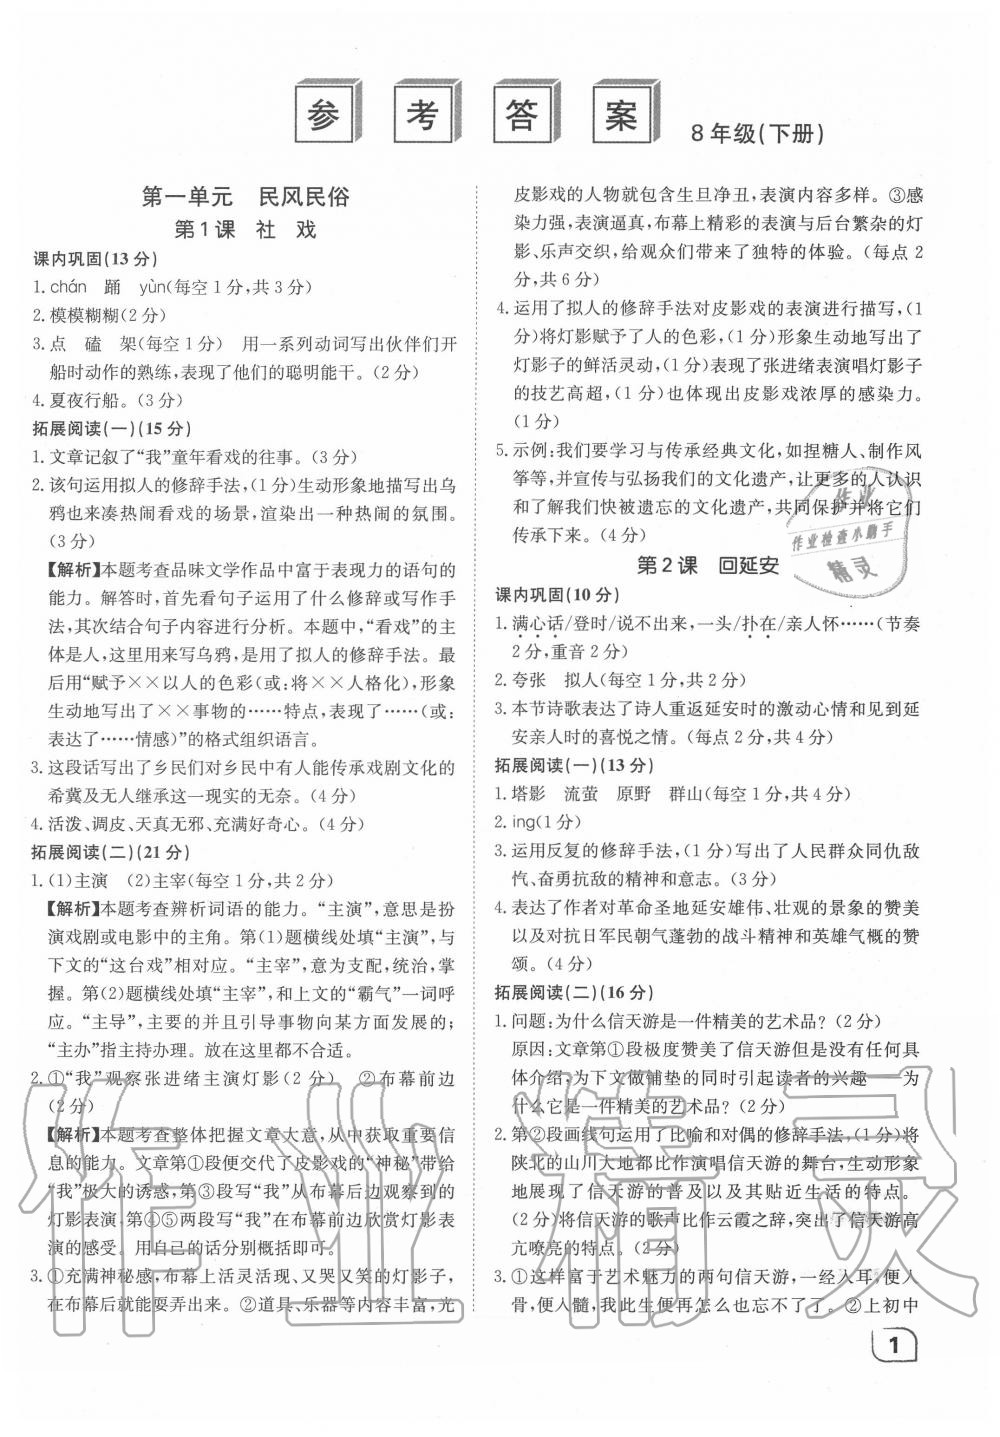 参考答案 8年级(下册)
第一单元 民风民俗
第1课 社 戏
课内巩固(13分)
1. chán 踊 yùn(每空1分,共3分)
2. 模模糊糊(2分)
3. 点 磕 架(每空1分) 用一系列动词写出伙伴们开
船时动作的熟练,表现了他们的聪明能干。(2分)
4. 夏夜行船。(3分)
拓展阅读(一)(15分)
1. 文章记叙了“我”童年看戏的往事。(3分)
2. 该句运用拟人的修辞手法,(1分)生动形象地描写出乌
鸦也来凑热闹看戏的场景,渲染出一种热闹的氛围。
(3分)
【解析】本题考查品味文学作品中富于表现力的语句的
能力。解答时,首先看句子运用了什么修辞或写作手
法,其次结合句子内容进行分析。本题中,“看戏”的主
体是人,这里用来写乌鸦,是用了拟人的修辞手法。最
后用“赋予××以人的色彩(或:将××人格化),形象
生动地写出了××事物的……特点,表现了……(或:
表达了……情感)”的格式组织语言。
3. 这段话写出了乡民们对乡民中有人能传承戏剧文化的
希冀及无人继承这一现实的无奈。(4分)
4. 活泼、调皮、天真无邪、充满好奇心。(4分)
拓展阅读(二)(21分)
1. (1)主演 (2)主宰(每空1分,共2分)
【解析】本题考查辨析词语的能力。“主演”,意思是扮
演戏剧或电影中的主角。第(1)题横线处填“主演”,与
下文的“这台戏”相对应。“主宰”,意为支配,统治,掌
握。第(2)题横线处填“主宰”,和上文的“霸气”一词呼
应。“主导”,主要的并且引导事物向某方面发展的;
“主办”指主持办理。放在这里都不合适。
2. ①“我”观察张进绪主演灯影(2分) ②布幕前边
(2分)
【解析】本题考查整体把握文章大意,从中获取重要信
息的能力。文章第①段便交代了皮影戏的“神秘”带给
“我”极大的诱惑,第③段写“我”从布幕后边观察到的
灯影表演,第④⑤两段写“我”在布幕前边欣赏灯影表
演的感受。用自己的话分别概括即可。
3. ①充满神秘感,布幕上活灵活现、又哭又笑的灯影子,
在布幕后就能耍弄出来。②道具、乐器等内容丰富,光
皮影戏的人物就包含生旦净丑,表演内容多样。③感
染力强,表演逼真,布幕上精彩的表演与后台繁杂的灯
影、乐声交织,给观众们带来了独特的体验。(每点2
分,共6分)
4. 运用了拟人的修辞手法对皮影戏的表演进行描写,(1
分)将灯影赋予了人的色彩,(1分)形象生动地写出了
灯影子的鲜活灵动,(1分)表现了张进绪表演唱灯影子
的技艺高超,(1分)也体现出皮影戏浓厚的感染力。
(1分)
5. 示例:我们要学习与传承经典文化,如捏糖人、制作风
筝等,并宣传与弘扬我们的文化遗产,让更多的人认识
和了解我们快被遗忘的文化遗产,共同保护并将它们
传承下来。(4分)
作业
作业检查小助手
精灵
第2课 回延安
课内巩固(10分)
1. 满心话/登时/说不出来,一头/扑在/亲人怀……(节奏
2分,重音2分)
2. 夸张 拟人(每空1分,共2分)
3. 本节诗歌表达了诗人重返延安时的激动心情和见到延
安亲人时的喜悦之情。(每点2分,共4分)
拓展阅读(一)(13分)
1. 塔影 流萤 原野 群山(每空1分,共4分)
2. ing(1分)
3. 运用反复的修辞手法,(1分)写出了人民群众同仇敌
忾、奋勇抗敌的精神和意志。(3分)
4. 表达了作者对革命圣地延安雄伟、壮观的景象的赞美
以及对抗日军民朝气蓬勃的战斗精神和英雄气概的赞
颂。(4分)
拓展阅读(二)(16分)
1. 问题:为什么信天游是一件精美的艺术品?(2分)
原因:文章第①段极度赞美了信天游但是没有任何具
体介绍,为下文做铺垫的同时引起读者的兴趣——为
什么它是一件精美的艺术品?(2分)
2. 第②段画线句运用了比喻和对偶的修辞手法,(1分)将
陕北的山川大地都比作演唱信天游的舞台,生动形象
地展现了信天游的普及以及其贴近生活的特点。
(2分)将信天游的歌声比作云霞之辞,突出了信天游高
亢嘹亮的特点。(1分)
3. ①这样富于艺术魅力的两句信天游,一经入耳,便入
骨,便入髓,我此生便再怎么也忘不了了。②上初中
作业精灵
1